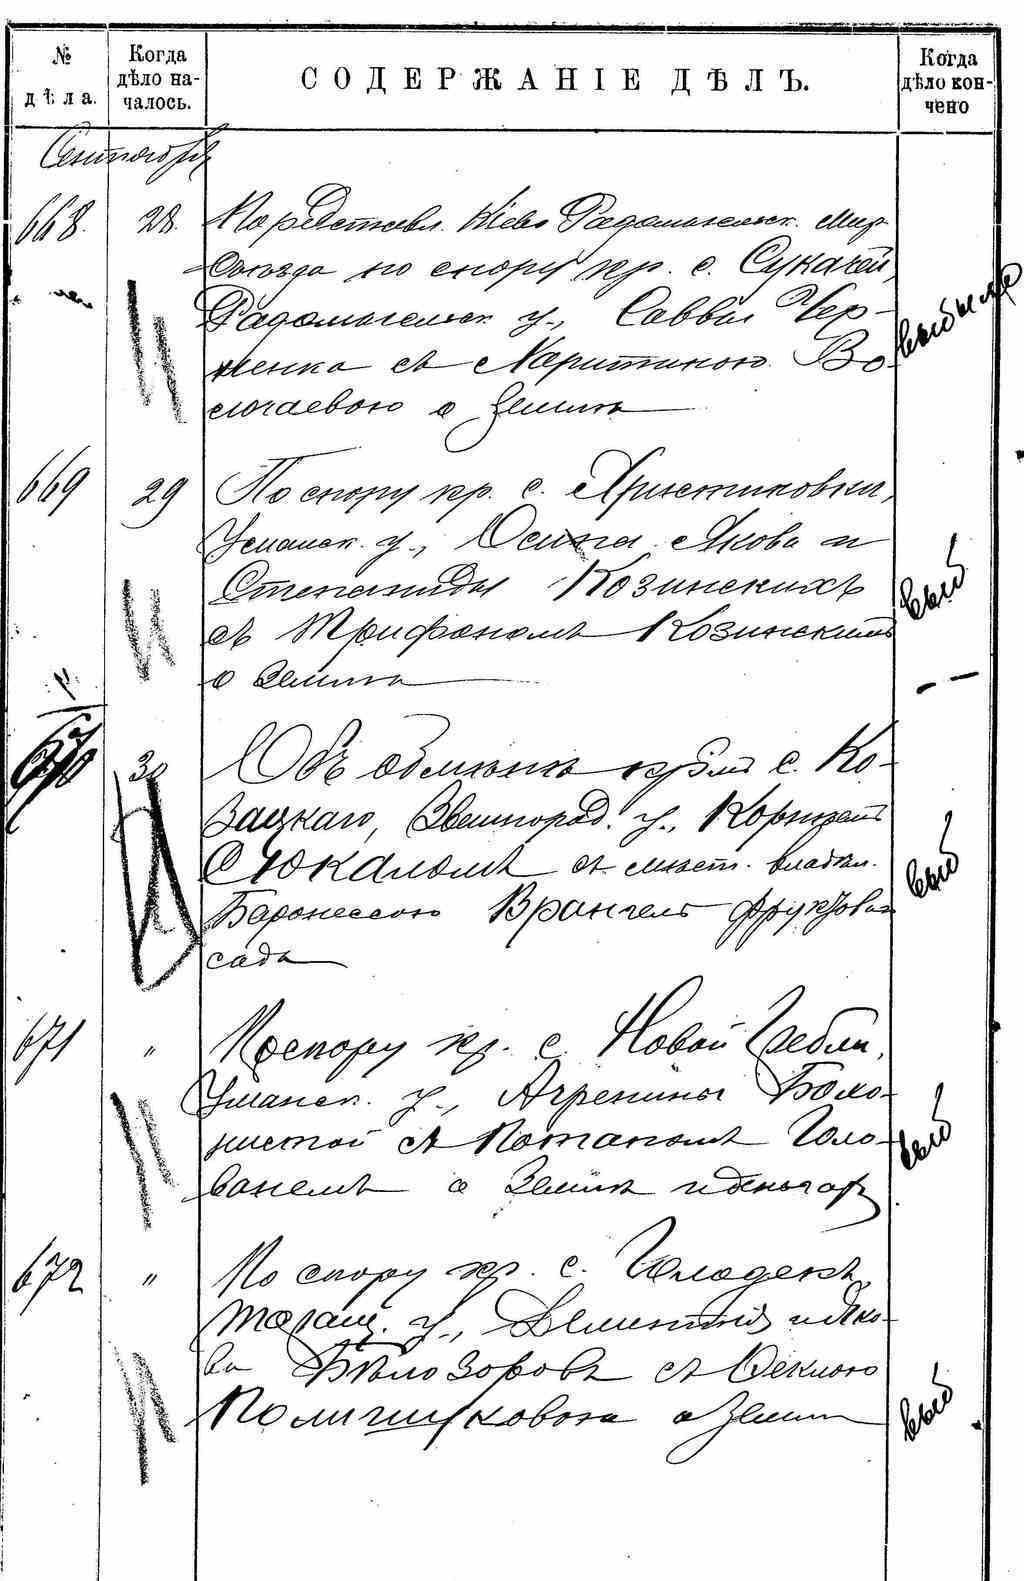 № дѣла.
Когда дѣло началось.
СОДЕРЖАНІЕ ДѢЛЪ.
Когда дѣло кончено
Сентября
668. 28. По представл. Кіево Радомысельск. Мир.
Съѣзда по спору кр. с. Сукачей,
Радомысельск у., Саввы Чер-
ненка съ Харитиною Во
о землѣ
выбыло
669 29 По спору кр. с. Христиновки,
Уманск. у., Осипа, Якова и
Степаниды Козинскихъ
съ Трифономъ Козинскимъ
о землѣ
выб
670 30 Объ обмѣнѣ кр. с. Ко-
зацкаго, Звенигород. у., Корнѣемъ
съ мѣст. владѣл.
Баронессою Врангель фруктова
сада
выб
671 " По спору кр. с. Новой Гребли,
Уманск. у., Агрепины Боло-
нистой съ Потапомъ Голо-
ванемъ о землѣ и деньгахъ
выб
672 " По спору кр. с. Володек
Таращ. у., Дементія и Яко-
ва Бѣлозоровъ съ Феклою
Полищуковою о землѣ
выб